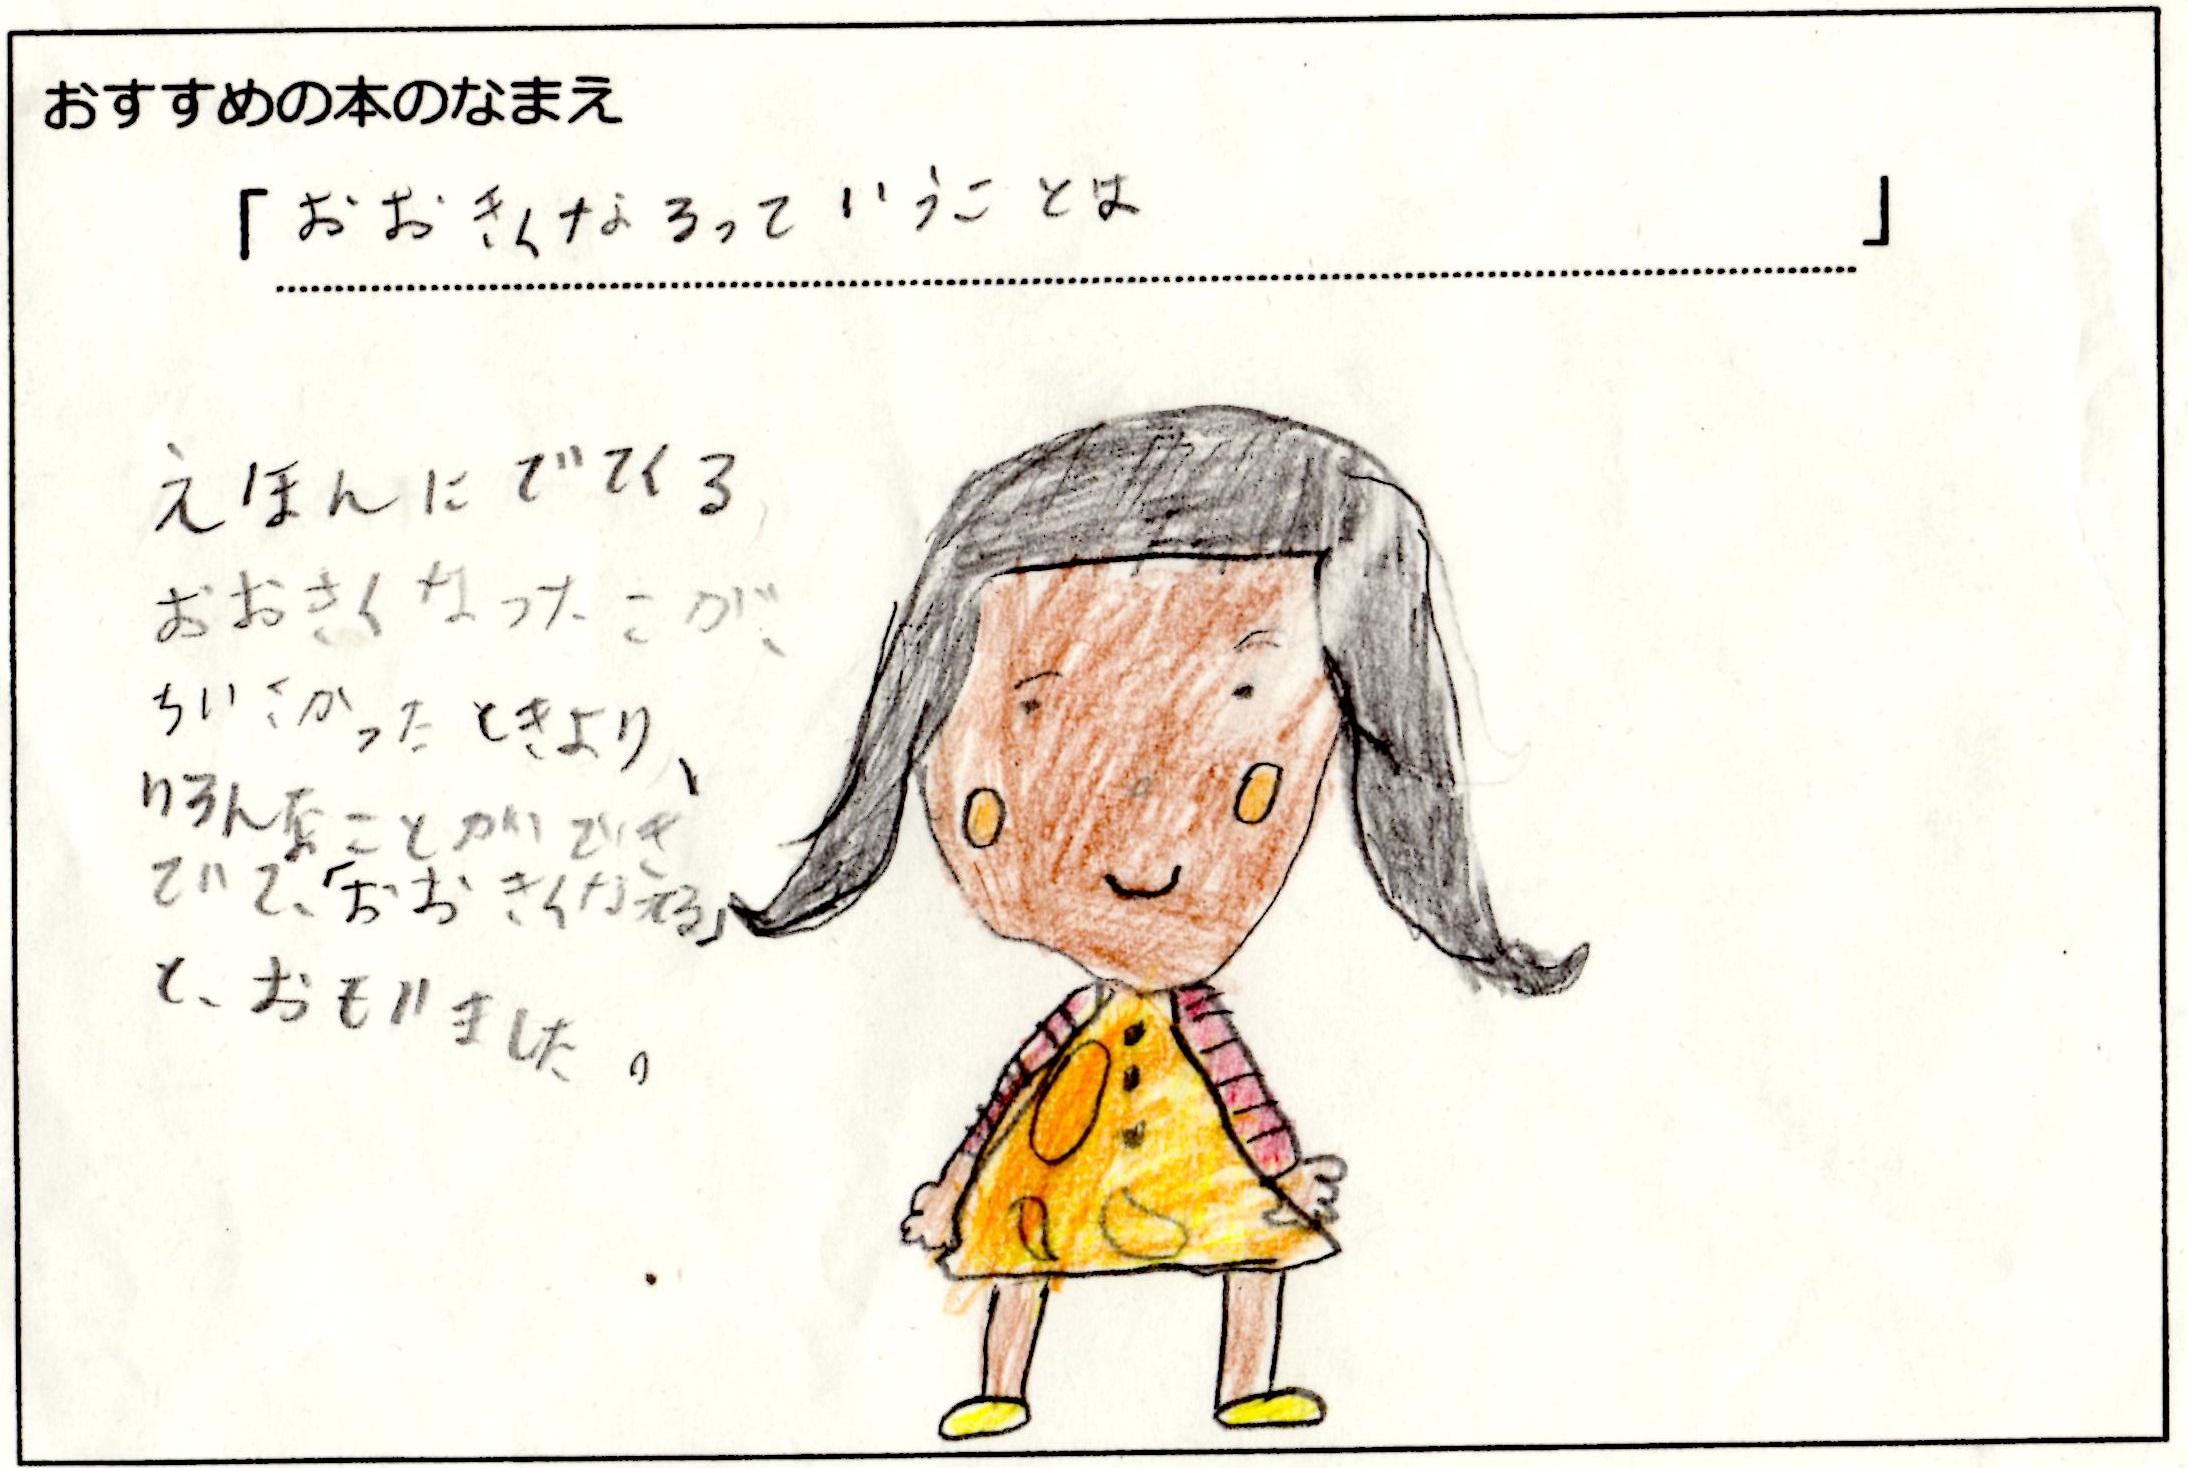 おすすめの本のなまえ
「おおきくなるっていうことは」
えほんにでてくる
おおきくなったこが、
ちいさかったときより、
いろんなことができ
でいて、「おおきくなえる」
と、おもいました。